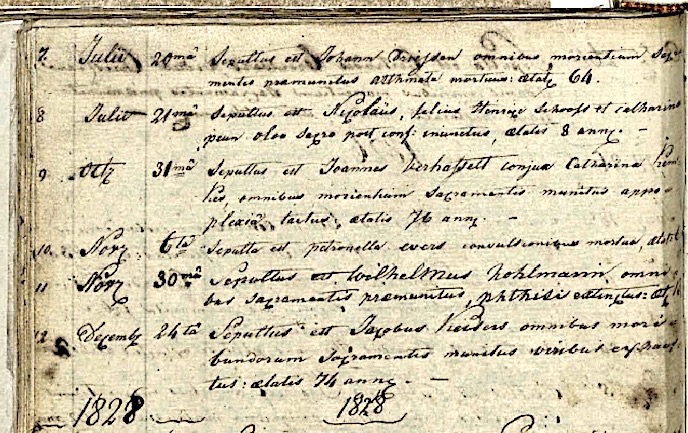 7. Julii 20mâ Sepultus est Johann Driessen omnibus morientium Sacra
mentis præmunitus asthmate mortuus: ætatis 64
8 Julii 21mâ Sepultus est Nicolaüs, filius Henrici Schoofs et Catharina
oleo sacro post conf: inunctus, ætatis 8 anny. –
9 Octz 31mâ Sepultus est Joannes Verhasselt conjux Catharina
omnibus morientium Sacramentis munitus appo-
plexiâ tactus, ætatis 76 anny. –
10. Novz 6tâ Sepulta est petronella evers convulsionibus mortua, ætat
11 Novz 30mâ Sepultus est Wilhelmus Kohlmann omni
bus sacramentis præmunitus, phthisi extinctus: æt
12 Decembz 24tâ Sepultus est Jacobus omnibus mori
bundorum Sacramentis munitus viribus exhaus
tus: ætatis 74 anny. –
1828 1828